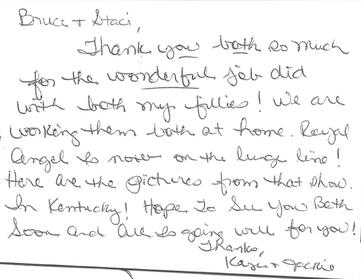 Bruce + Staci,
Thank you both so much
for the wonderful job did
with both my fillies! We are
working them both at home. Royal
Angel is now on the lunge line!
Here are the pictures from that show
In Kentucky! Hope to See you Both
Soon And All is going well for you!
Thanks,